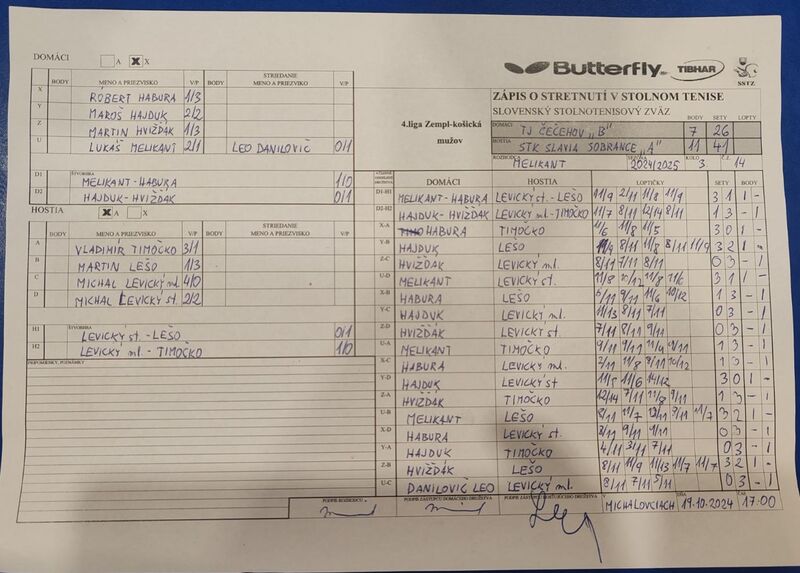 DOMÁCI A X X
BODY MENO A PRIEZVISKO V/P BODY STRIEDANIE MENO A PRIEZVISKO V/P
X RÓBERT HABURA 1/3
Y MAROŠ HAJDUK 2/2
Z MARTIN HVIŽĎÁK 1/3
U LUKÁŠ MELIKANT 2/1 LEO DANILOVIČ 0/1
D1 ŠTVORHRA MELIKANT-HABURA 1/0
D2 HAJDUK-HVIŽĎÁK 0/1
HOSTIA X A X
BODY MENO A PRIEZVISKO V/P BODY STRIEDANIE MENO A PRIEZVISKO V/P
A VLADIMÍR TIMOČKO 3/1
B MARTIN LEŠO 1/3
C MICHAL LEVICKÝ ml. 4/0
D MICHAL LEVICKÝ st. 2/2
H1 ŠTVORHRA LEVICKÝ st.-LEŠO 0/1
H2 LEVICKÝ ml.-TIMOČKO 1/0
PRIPOMIENKY, POZNÁMKY
Butterfly TIBHAR SSTZ
4.liga Zempl-košická mužov
ZÁPIS O STRETNUTÍ V STOLNOM TENISE
SLOVENSKÝ STOLNOTENISOVÝ ZVÄZ
DOMÁCI BODY SETY
TJ ČEČEHOV "B" 7 26
HOSTIA
STK SLAVIA SOBRANCE "A" 11 41
ROZHODCA MELIKANT SEZÓNA 2024/2025 KOLO 3. Č.Z. 14
DOMÁCI HOSTIA LOPTIČKY SETY BODY
D1-H1 MELIKANT-HABURA LEVICKÝ st.-LEŠO 11/9 2/11 11/8 11/9 3 1 1 -
D2-H2 HAJDUK-HVIŽĎÁK LEVICKÝ ml-TIMOČKO 11/7 8/11 12/14 8/11 1 3 - 1
X-A HABURA TIMOČKO 11/6 11/8 11/5 3 0 1 -
Y-B HAJDUK LEŠO 11/9 8/11 11/8 8/11 11/9 3 2 1 -
Z-C HVIŽĎÁK LEVICKÝ ml. 8/11 7/11 8/11 0 3 - 1
U-D MELIKANT LEVICKÝ st. 11/8 10/12 11/8 11/6 3 1 1 -
X-B HABURA LEŠO 6/11 9/11 11/6 10/12 1 3 - 1
Y-C HAJDUK LEVICKÝ ml. 11/13 8/11 7/11 0 3 - 1
Z-D HVIŽĎÁK LEVICKÝ st. 7/11 8/11 9/11 0 3 - 1
U-A MELIKANT TIMOČKO 1 3 - 1
X-C HABURA LEVICKÝ ml. 1 3 - 1
Y-D HAJDUK LEVICKÝ st 11/5 11/6 14/12 3 0 1 -
Z-A HVIŽĎÁK TIMOČKO 12/14 7/11 11/8 9/11 1 3 - 1
U-B MELIKANT LEŠO 3 2 1 -
X-D HABURA LEVICKÝ st. 0 3 - 1
Y-A HAJDUK TIMOČKO 4/11 3/11 7/11 0 3 - 1
Z-B HVIŽĎÁK LEŠO 8/11 11/9 11/13 11/7 11/7 3 2 1 -
U-C DANILOVIČ LEO LEVICKÝ ml. 8/11 7/11 5/11 0 3 - 1
PODPIS ROZHODCU PODPIS ZÁSTUPCU DOMÁCEHO DRUŽSTVA PODPIS ZÁSTUPCU HOSŤUJÚCEHO DRUŽSTVA V MICHALOVCIACH DŇA 19.10.2024 ČAS 17:00